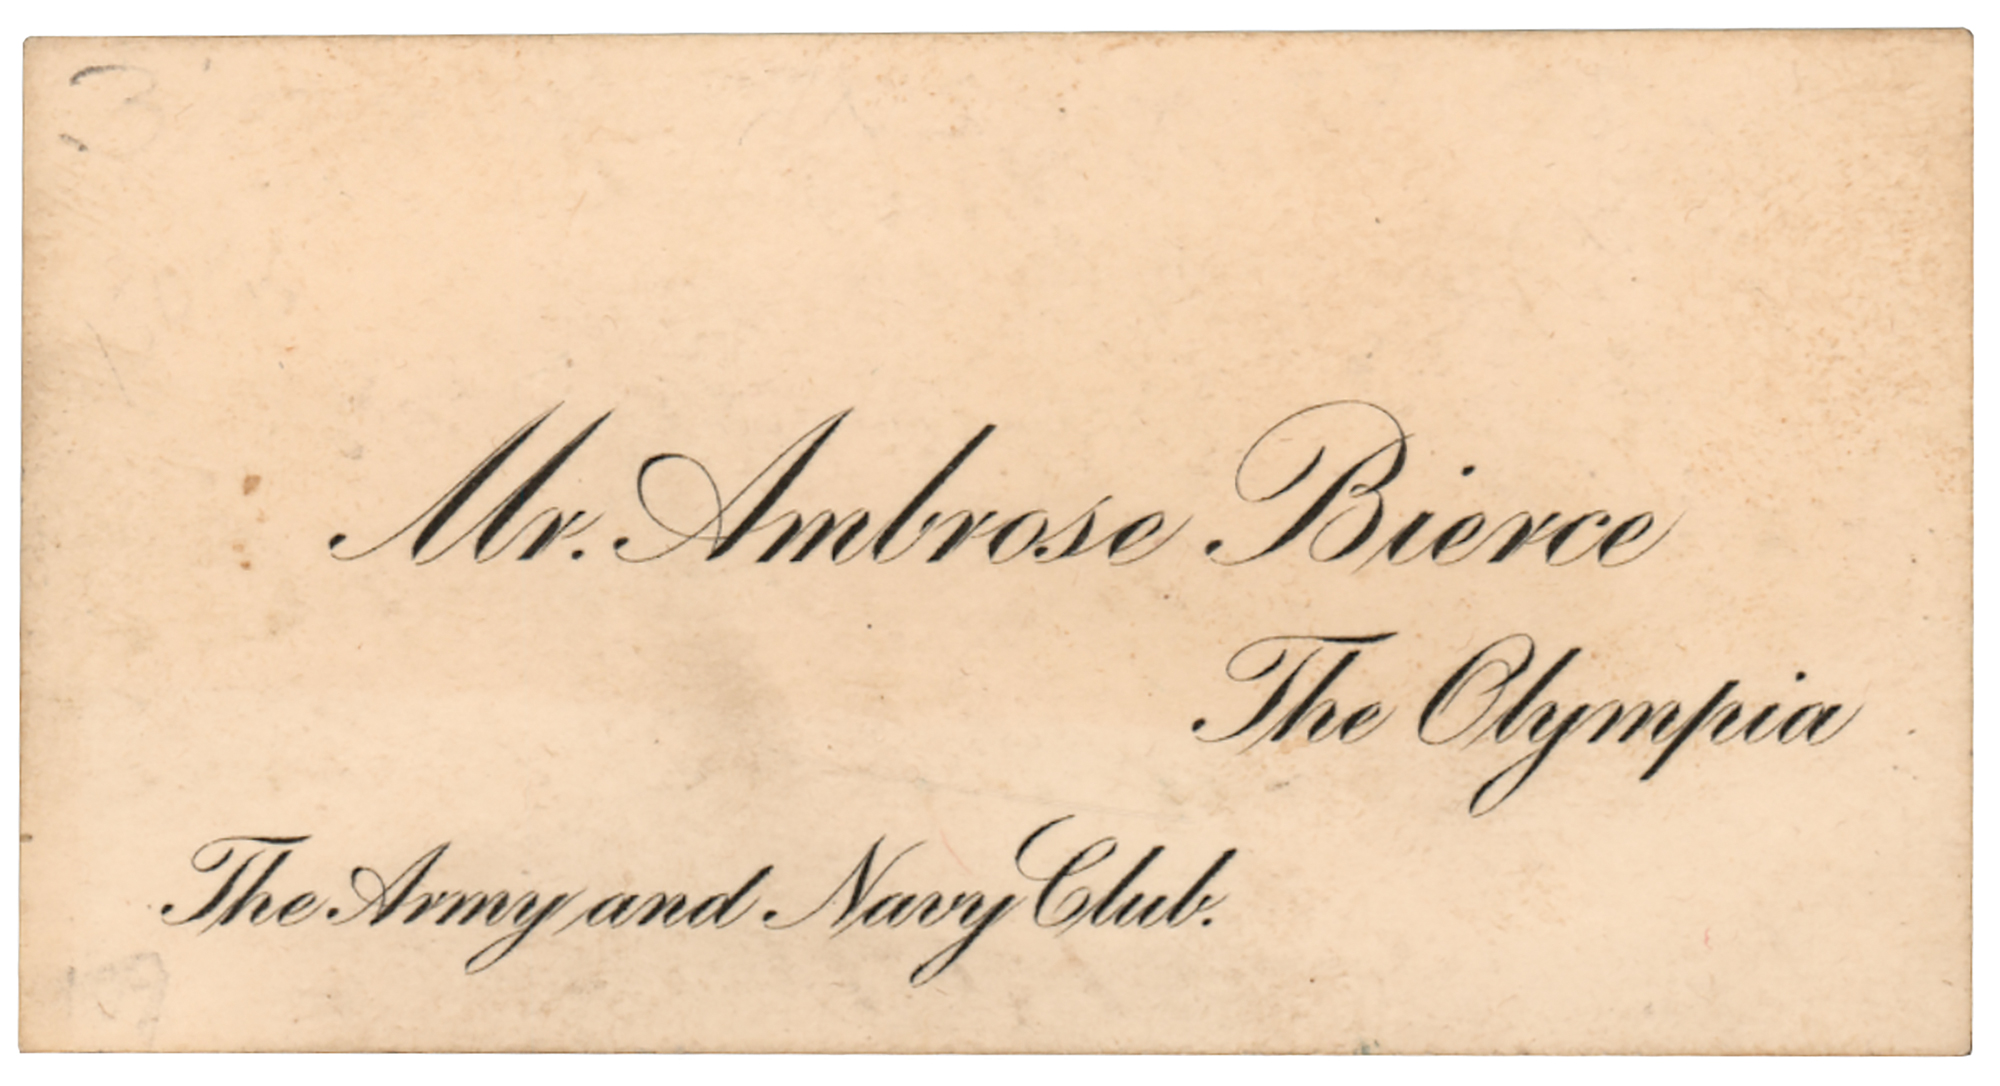 Mr. Ambrose Bierce
The Olympia
The Army and Navy Club.